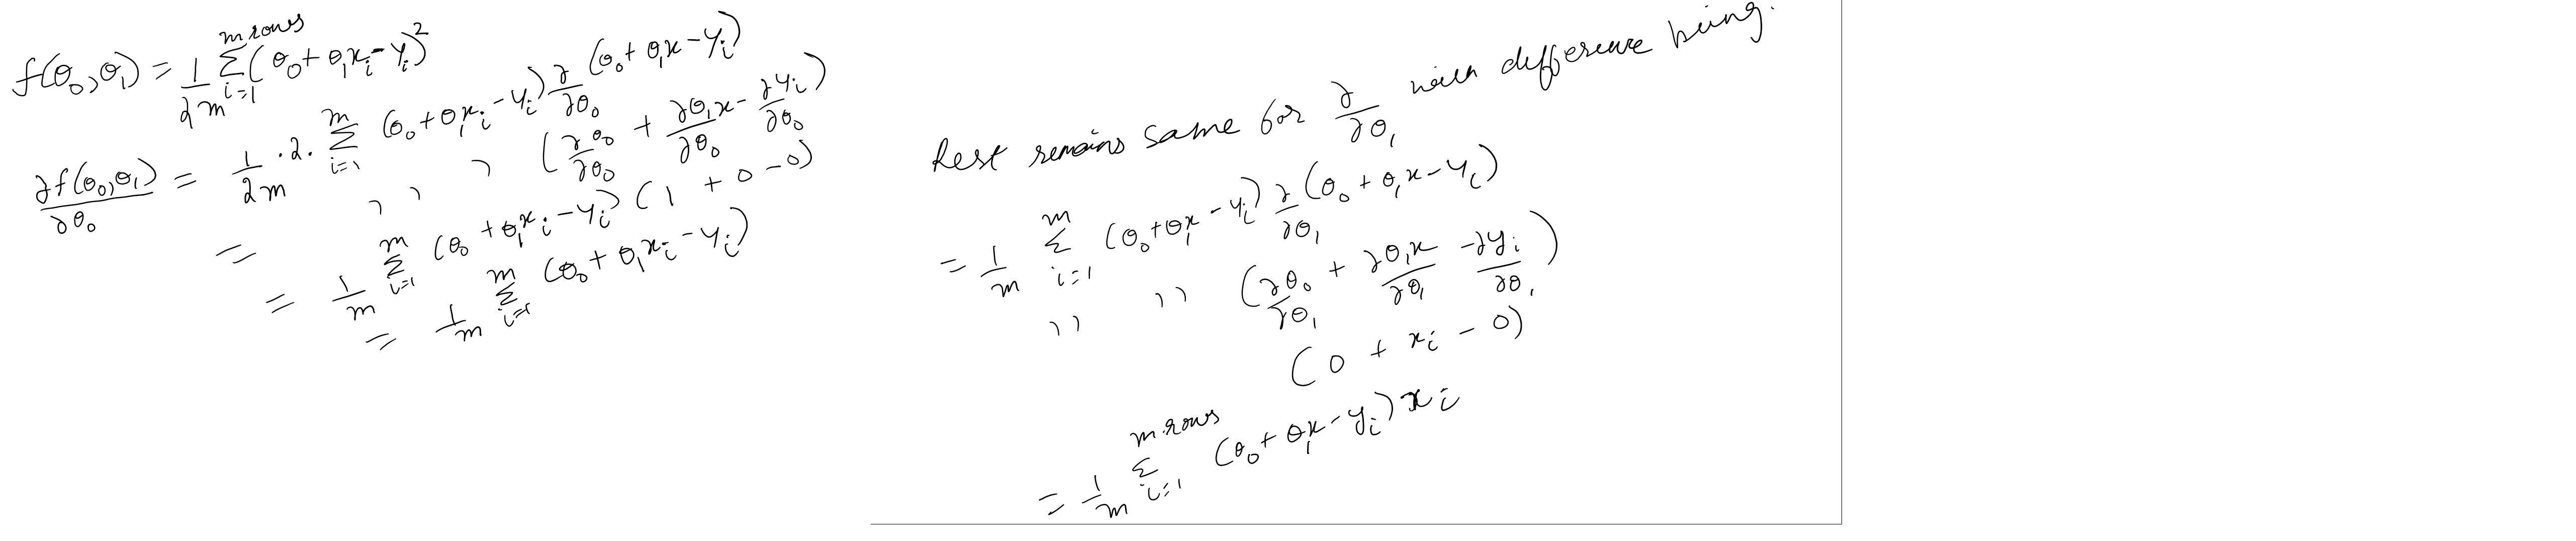 f(θ₀,θ₁) = 1/2m Σ_{i=1}^{m rows} (θ₀ + θ₁xᵢ - yᵢ)²
∂f(θ₀,θ₁)/∂θ₀ = 1/2m · 2 · Σ_{i=1}^{m} (θ₀ + θ₁xᵢ - yᵢ) ∂/∂θ₀ (θ₀ + θ₁x - yᵢ)
= ,, ,, (∂θ₀/∂θ₀ + ∂θ₁x/∂θ₀ - ∂yᵢ/∂θ₀)
= 1/m Σ_{i=1}^{m} (θ₀ + θ₁xᵢ - yᵢ) (1 + 0 - 0)
= 1/m Σ_{i=1}^{m} (θ₀ + θ₁xᵢ - yᵢ)
Rest remains same for ∂/∂θ₁ with difference being.
= 1/m Σ_{i=1}^{m} (θ₀ + θ₁x - yᵢ) ∂/∂θ₁ (θ₀ + θ₁x - yᵢ)
,, ,, (∂θ₀/∂θ₁ + ∂θ₁x/∂θ₁ - ∂yᵢ/∂θ₁)
(0 + xᵢ - 0)
= 1/m Σ_{i=1}^{m rows} (θ₀ + θ₁x - yᵢ) xᵢ